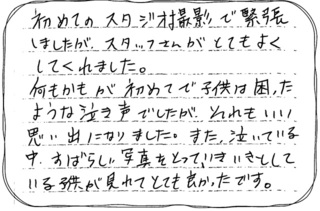 初めてのスタジオ撮影で緊張
しましたが、スタッフさんがとてもよく
してくれました。
何もかもが初めてで子供は困った
ような泣き声でしたが、それもいい
思い出になりました。また、泣いている
中、すばらしい写真をとって、いきいきとして
いる子供が見れてとても良かったです。